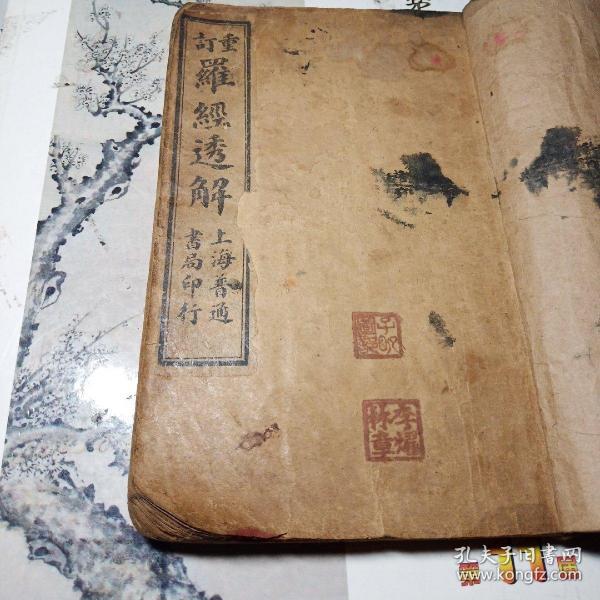 重訂
羅經透解
上海普通
書局印行
子明
圖記
李耀
林章
孔夫子旧书网
www.kongfz.com